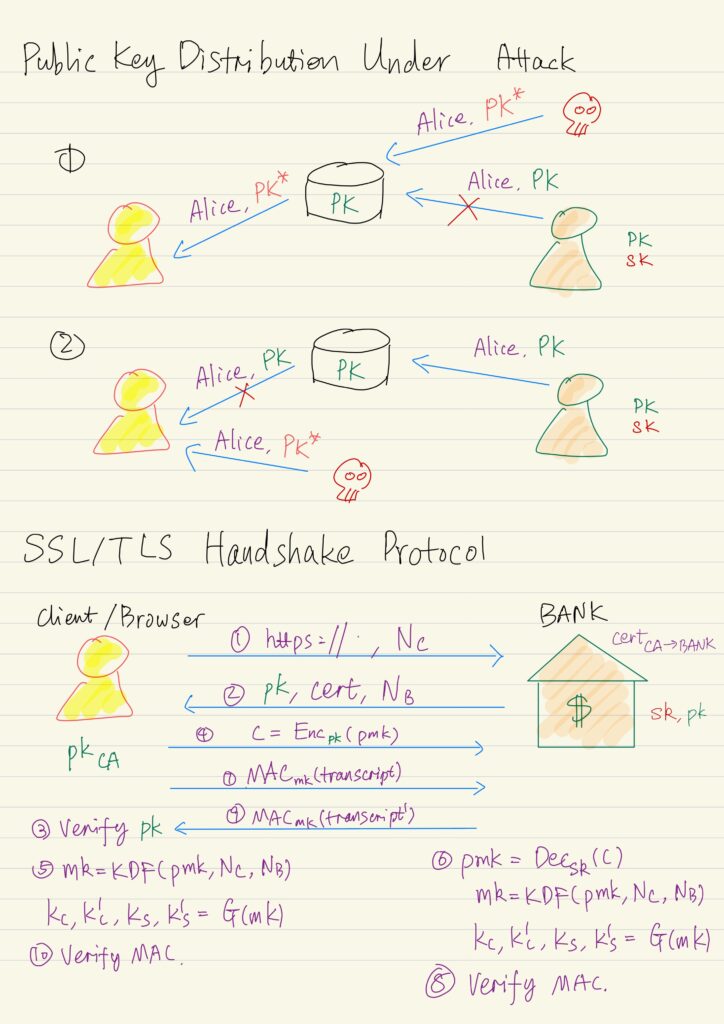 Public Key Distribution Under Attack
①
Alice, PK*
Alice, PK
Alice, PK*
PK
PK
SK
②
Alice, PK
Alice, PK
PK
PK
SK
Alice, PK*
SSL/TLS Handshake Protocol
Client/Browser
BANK
cert CA→BANK
① https://·, Nc
② pk, cert, NB
$
sk, pk
④ C = Enc pk (pmk)
pk CA
⑦ MAC mk (transcript)
⑨ MAC mk (transcript')
③ Verify pk
⑤ mk = KDF(pmk, Nc, NB)
kc, k'c, ks, k's = G(mk)
⑩ Verify MAC.
⑥ pmk = Dec sk (C)
mk = KDF(pmk, Nc, NB)
kc, k'c, ks, k's = G(mk)
⑧ Verify MAC.